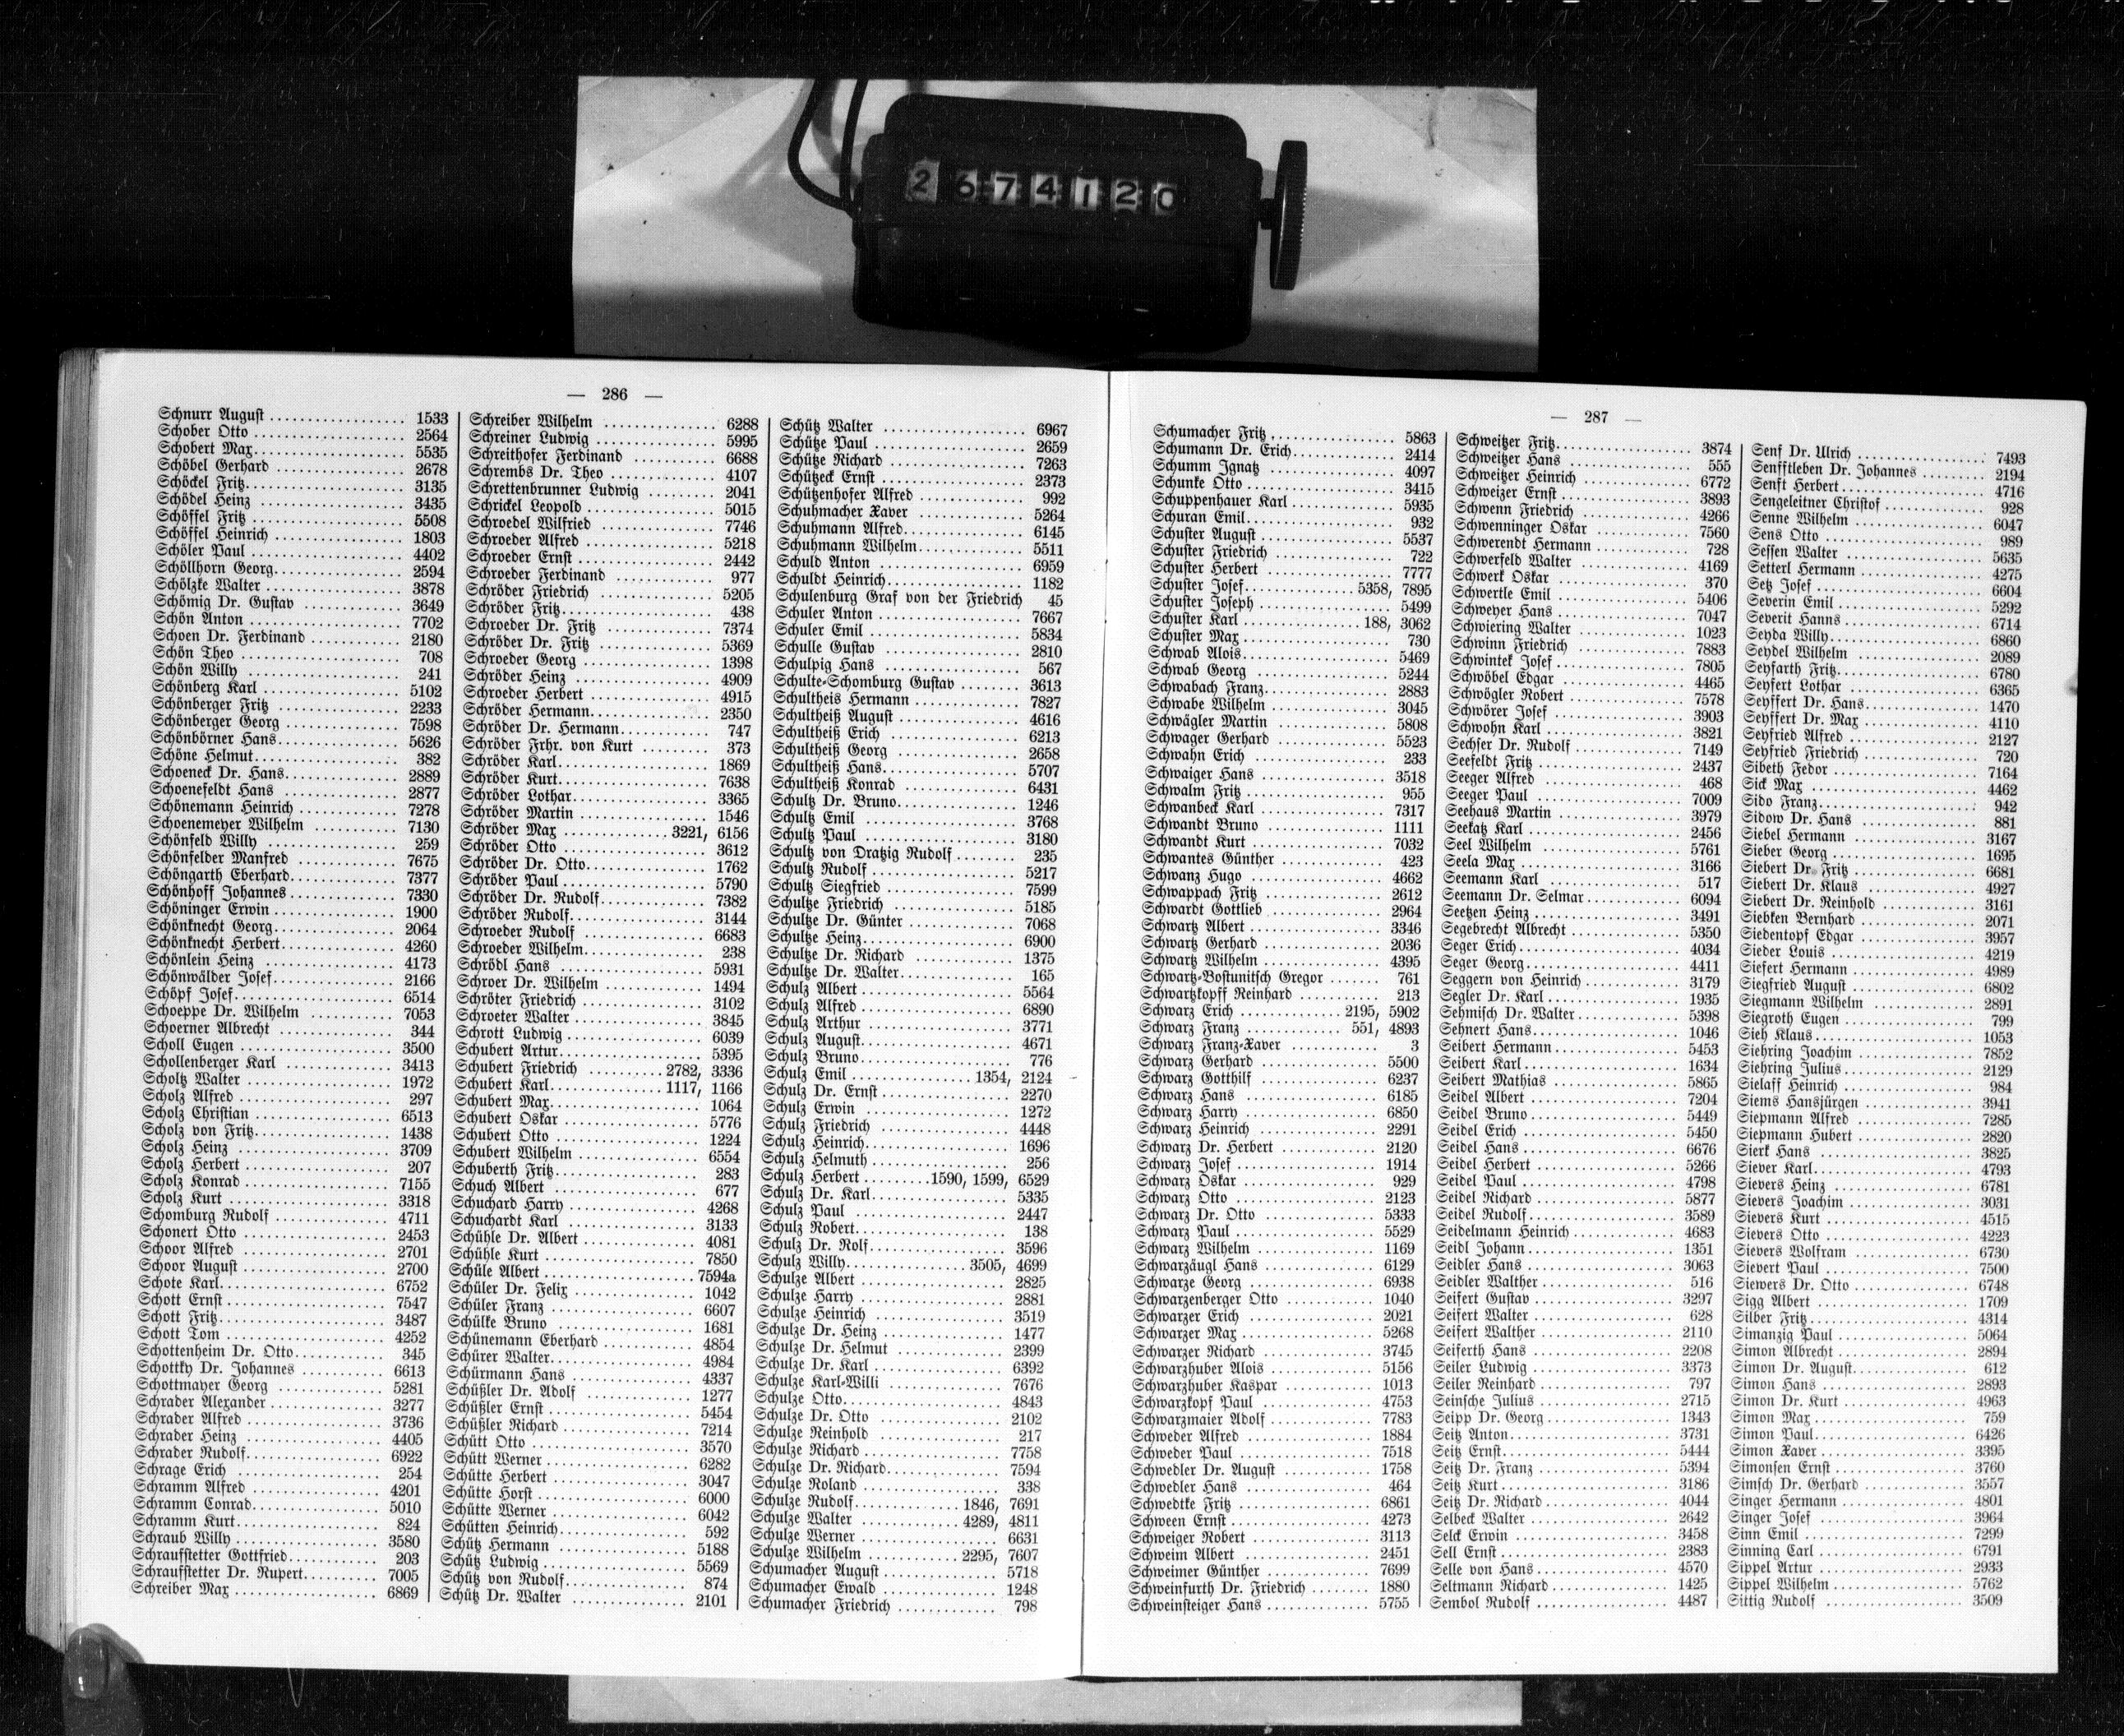 2674120
— 286 —
Schnurr August 1533
Schober Otto 2564
Schobert Max 5535
Schöbel Gerhard 2678
Schöckel Fritz 3135
Schödel Heinz 3435
Schöffel Fritz 5508
Schöffel Heinrich 1803
Schöler Paul 4402
Schöllhorn Georg 2594
Schölzke Walter 3878
Schömig Dr. Gustav 3649
Schön Anton 7702
Schoen Dr. Ferdinand 2180
Schön Theo 708
Schön Willy 241
Schönberg Karl 5102
Schönberger Fritz 2233
Schönberger Georg 7598
Schönbörner Hans 5626
Schöne Helmut 382
Schoeneck Dr. Hans 2889
Schoenefeldt Hans 2877
Schönemann Heinrich 7278
Schoenemeyer Wilhelm 7130
Schönfeld Willy 259
Schönfelder Manfred 7675
Schöngarth Eberhard 7377
Schönhoff Johannes 7330
Schöninger Erwin 1900
Schönknecht Georg 2064
Schönknecht Herbert 4260
Schönlein Heinz 4173
Schönwälder Josef 2166
Schöpf Josef 6514
Schoeppe Dr. Wilhelm 7053
Schoerner Albrecht 344
Scholl Eugen 3500
Schollenberger Karl 3413
Scholtz Walter 1972
Scholz Alfred 297
Scholz Christian 6513
Scholz von Fritz 1438
Scholz Heinz 3709
Scholz Herbert 207
Scholz Konrad 7155
Scholz Kurt 3318
Schomburg Rudolf 4711
Schonert Otto 2453
Schoor Alfred 2701
Schoor August 2700
Schote Karl 6752
Schott Ernst 7547
Schott Fritz 3487
Schott Tom 4252
Schottenheim Dr. Otto 345
Schottky Dr. Johannes 6613
Schottmayer Georg 5281
Schrader Alexander 3277
Schrader Alfred 3736
Schrader Heinz 4405
Schrader Rudolf 6922
Schrage Erich 254
Schramm Alfred 4201
Schramm Conrad 5010
Schramm Kurt 824
Schraub Willy 3580
Schraufstetter Gottfried 203
Schraufstetter Dr. Rupert 7005
Schreiber Max 6869
Schreiber Wilhelm 6288
Schreiner Ludwig 5995
Schreithofer Ferdinand 6688
Schrembs Dr. Theo 4107
Schrettenbrunner Ludwig 2041
Schrickel Leopold 5015
Schroedel Wilfried 7746
Schroeder Alfred 5218
Schroeder Ernst 2442
Schroeder Ferdinand 977
Schröder Friedrich 5205
Schröder Fritz 438
Schroeder Dr. Fritz 7374
Schröder Dr. Fritz 5369
Schroeder Georg 1398
Schröder Heinz 4909
Schroeder Herbert 4915
Schröder Hermann 2350
Schröder Dr. Hermann 747
Schröder Frhr. von Kurt 373
Schröder Karl 1869
Schröder Kurt 7638
Schröder Lothar 3365
Schröder Martin 1546
Schröder Max 3221, 6156
Schröder Otto 3612
Schröder Dr. Otto 1762
Schröder Paul 5790
Schröder Dr. Rudolf 7382
Schröder Rudolf 3144
Schroeder Rudolf 6683
Schroeder Wilhelm 238
Schrödl Hans 5931
Schroer Dr. Wilhelm 1494
Schröter Friedrich 3102
Schroeter Walter 3845
Schrott Ludwig 6039
Schubert Artur 5395
Schubert Friedrich 2782, 3336
Schubert Karl 1117, 1166
Schubert Max 1064
Schubert Oskar 5776
Schubert Otto 1224
Schubert Wilhelm 6554
Schuberth Fritz 283
Schuch Albert 677
Schuchard Harry 4268
Schuchardt Karl 3133
Schühle Dr. Albert 4081
Schühle Kurt 7850
Schüle Albert 7594a
Schüler Dr. Felix 1042
Schüler Franz 6607
Schülke Bruno 1681
Schünemann Eberhard 4854
Schürer Walter 4984
Schürmann Hans 4337
Schüßler Dr. Adolf 1277
Schüßler Ernst 5454
Schüßler Richard 7214
Schütt Otto 3570
Schütt Werner 6282
Schütte Herbert 3047
Schütte Horst 6000
Schütte Werner 6042
Schütten Heinrich 592
Schütz Hermann 5188
Schütz Ludwig 5569
Schütz von Rudolf 874
Schütz Dr. Walter 2101
Schütz Walter 6967
Schütze Paul 2659
Schütze Richard 7263
Schützeck Ernst 2373
Schützenhofer Alfred 992
Schuhmacher Xaver 5264
Schuhmann Alfred 6145
Schuhmann Wilhelm 5511
Schuld Anton 6959
Schuldt Heinrich 1182
Schulenburg Graf von der Friedrich 45
Schuler Anton 7667
Schuler Emil 5834
Schulle Gustav 2810
Schulpig Hans 567
Schulte-Schomburg Gustav 3613
Schultheis Hermann 7827
Schultheiß August 4616
Schultheiß Erich 6213
Schultheiß Georg 2658
Schultheiß Hans 5707
Schultheiß Konrad 6431
Schultz Dr. Bruno 1246
Schultz Emil 3768
Schultz Paul 3180
Schultz von Dratzig Rudolf 235
Schultz Rudolf 5217
Schultz Siegfried 7599
Schultze Friedrich 5185
Schultze Dr. Günter 7068
Schultze Heinz 6900
Schultze Dr. Richard 1375
Schultze Dr. Walter 165
Schulz Albert 5564
Schulz Alfred 6890
Schulz Arthur 3771
Schulz August 4671
Schulz Bruno 776
Schulz Emil 1354, 2124
Schulz Dr. Ernst 2270
Schulz Erwin 1272
Schulz Friedrich 4448
Schulz Heinrich 1696
Schulz Helmuth 256
Schulz Herbert 1590, 1599, 6529
Schulz Dr. Karl 5335
Schulz Paul 2447
Schulz Robert 138
Schulz Dr. Rolf 3596
Schulz Willy 3505, 4699
Schulze Albert 2825
Schulze Harry 2881
Schulze Heinrich 3519
Schulze Dr. Heinz 1477
Schulze Dr. Helmut 2399
Schulze Dr. Karl 6392
Schulze Karl-Willi 7676
Schulze Otto 4843
Schulze Dr. Otto 2102
Schulze Reinhold 217
Schulze Richard 7758
Schulze Dr. Richard 7594
Schulze Roland 338
Schulze Rudolf 1846, 7691
Schulze Walter 4289, 4811
Schulze Werner 6631
Schulze Wilhelm 2295, 7607
Schumacher August 5718
Schumacher Ewald 1248
Schumacher Friedrich 798
— 287 —
Schumacher Fritz 5863
Schumann Dr. Erich 2414
Schumm Ignatz 4097
Schunke Otto 3415
Schuppenhauer Karl 5935
Schuran Emil 932
Schuster August 5537
Schuster Friedrich 722
Schuster Herbert 7777
Schuster Josef 5358, 7895
Schuster Joseph 5499
Schuster Karl 188, 3062
Schuster Max 730
Schwab Alois 5469
Schwab Georg 5244
Schwabach Franz 2883
Schwabe Wilhelm 3045
Schwägler Martin 5808
Schwager Gerhard 5523
Schwahn Erich 233
Schwaiger Hans 3518
Schwalm Fritz 955
Schwanbeck Karl 7317
Schwandt Bruno 1111
Schwandt Kurt 7032
Schwantes Günther 423
Schwanz Hugo 4662
Schwappach Fritz 2612
Schwardt Gottlieb 2964
Schwartz Albert 3346
Schwartz Gerhard 2036
Schwartz Wilhelm 4395
Schwartz-Bostunitsch Gregor 761
Schwartzkopff Reinhard 213
Schwarz Erich 2195, 5902
Schwarz Franz 551, 4893
Schwarz Franz-Xaver 3
Schwarz Gerhard 5500
Schwarz Gotthilf 6237
Schwarz Hans 6185
Schwarz Harry 6850
Schwarz Heinrich 2291
Schwarz Dr. Herbert 2120
Schwarz Josef 1914
Schwarz Oskar 929
Schwarz Otto 2123
Schwarz Dr. Otto 5333
Schwarz Paul 5529
Schwarz Wilhelm 1169
Schwarzäugl Hans 6129
Schwarze Georg 6938
Schwarzenberger Otto 1040
Schwarzer Erich 2021
Schwarzer Max 5268
Schwarzer Richard 3745
Schwarzhuber Alois 5156
Schwarzhuber Kaspar 1013
Schwarzkopf Paul 4753
Schwarzmaier Adolf 7783
Schweder Alfred 1884
Schweder Paul 7518
Schwedler Dr. August 1758
Schwedler Hans 464
Schwedtke Fritz 6861
Schween Ernst 4273
Schweiger Robert 3113
Schweim Albert 2451
Schweimer Günther 7699
Schweinfurth Dr. Friedrich 1880
Schweinsteiger Hans 5755
Schweitzer Fritz 3874
Schweitzer Hans 555
Schweitzer Heinrich 6772
Schweizer Ernst 3893
Schwenn Friedrich 4266
Schwenninger Oskar 7560
Schwerendt Hermann 728
Schwerfeld Walter 4169
Schwerk Oskar 370
Schwertle Emil 5406
Schweyer Hans 7047
Schwiering Walter 1023
Schwinn Friedrich 7883
Schwintek Josef 7805
Schwöbel Edgar 4465
Schwögler Robert 7578
Schwörer Josef 3903
Schwohn Karl 3821
Sechser Dr. Rudolf 7149
Seefeldt Fritz 2437
Seeger Alfred 468
Seeger Paul 7009
Seehaus Martin 3979
Seekatz Karl 2456
Seel Wilhelm 5761
Seela Max 3166
Seemann Karl 517
Seemann Dr. Selmar 6094
Seetzen Heinz 3491
Segebrecht Albrecht 5350
Seger Erich 4034
Seger Georg 4411
Seggern von Heinrich 3179
Segler Dr. Karl 1935
Sehmisch Dr. Walter 5398
Sehnert Hans 1046
Seibert Hermann 5453
Seibert Karl 1634
Seibert Mathias 5865
Seidel Albert 7204
Seidel Bruno 5449
Seidel Erich 5450
Seidel Hans 6676
Seidel Herbert 5266
Seidel Paul 4798
Seidel Richard 5877
Seidel Rudolf 3589
Seidelmann Heinrich 4683
Seidl Johann 1351
Seidler Hans 3063
Seidler Walther 516
Seifert Gustav 3297
Seifert Walter 628
Seifert Walther 2110
Seiferth Hans 2208
Seiler Ludwig 3373
Seiler Reinhard 797
Seinsche Julius 2715
Seipp Dr. Georg 1343
Seitz Anton 3731
Seitz Ernst 5444
Seitz Dr. Franz 5394
Seitz Kurt 3186
Seitz Dr. Richard 4044
Selbeck Walter 2642
Selck Erwin 3458
Sell Ernst 2383
Selle von Hans 4570
Seltmann Richard 1425
Sembol Rudolf 4487
Senf Dr. Ulrich 7493
Senfftleben Dr. Johannes 2194
Senft Herbert 4716
Sengeleitner Christof 928
Senne Wilhelm 6047
Sens Otto 989
Sessen Walter 5635
Setterl Hermann 4275
Setz Josef 6604
Severin Emil 5292
Severit Hanns 6714
Seyda Willy 6860
Seydel Wilhelm 2089
Seyfarth Fritz 6780
Seyfert Lothar 6365
Seyffert Dr. Hans 1470
Seyffert Dr. Max 4110
Seyfried Alfred 2127
Seyfried Friedrich 720
Sibeth Fedor 7164
Sick Max 4462
Sido Franz 942
Sidow Dr. Hans 881
Siebel Hermann 3167
Sieber Georg 1695
Siebert Dr. Fritz 6681
Siebert Dr. Klaus 4927
Siebert Dr. Reinhold 3161
Siebken Bernhard 2071
Siedentopf Edgar 3957
Sieder Louis 4219
Siefert Hermann 4989
Siegfried August 6802
Siegmann Wilhelm 2891
Siegroth Eugen 799
Sieh Klaus 1053
Siehring Joachim 7852
Siehring Julius 2129
Sielaff Heinrich 984
Siems Hansjürgen 3941
Siepmann Alfred 7285
Siepmann Hubert 2820
Sierk Hans 3825
Siever Karl 4793
Sievers Heinz 6781
Sievers Joachim 3031
Sievers Kurt 4515
Sievers Otto 4223
Sievers Wolfram 6730
Sievert Paul 7500
Siewers Dr. Otto 6748
Sigg Albert 1709
Silber Fritz 4314
Simanzig Paul 5064
Simon Albrecht 2894
Simon Dr. August 612
Simon Hans 2893
Simon Dr. Kurt 4963
Simon Max 759
Simon Paul 6426
Simon Xaver 3395
Simonsen Ernst 3760
Simsch Dr. Gerhard 3557
Singer Hermann 4801
Singer Josef 3964
Sinn Emil 7299
Sinning Carl 6791
Sippel Artur 2933
Sippel Wilhelm 5762
Sittig Rudolf 3509